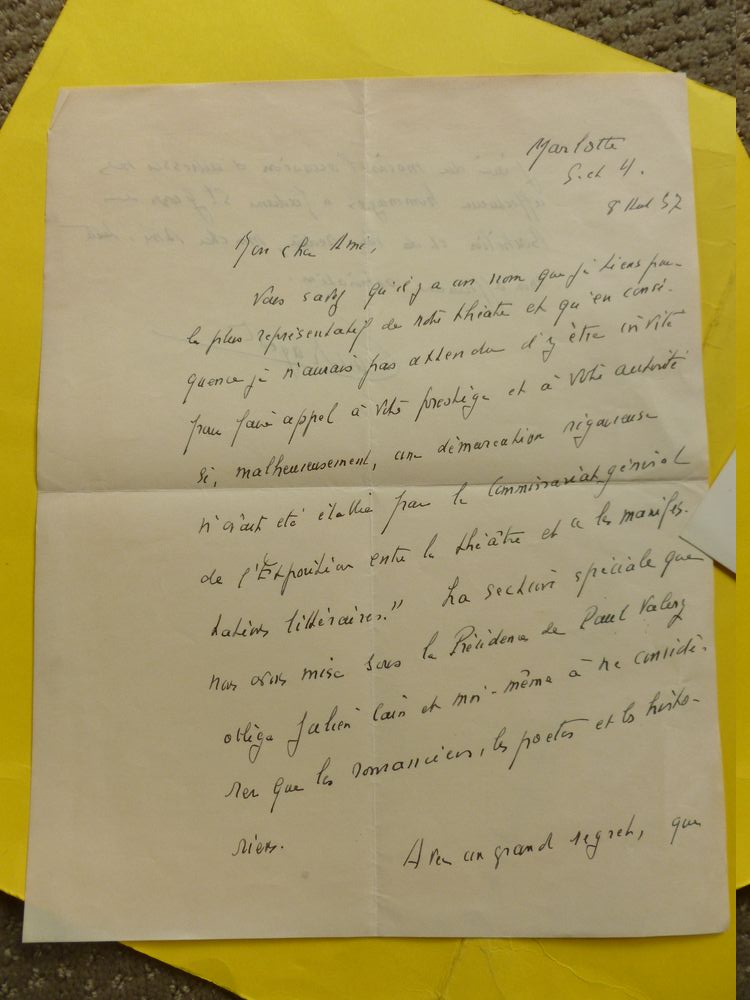 Marlotte
S. et M.
8 37
Mon cher Ami,
Vous savez qu'il y a un nom que je tiens pour
le plus représentatif de notre théâtre et qu'en consé-
quence je n'aurais pas attendu d'y être invité
pour faire appel à votre prestige et à votre autorité
si, malheureusement, une démarcation rigoureuse
n'avait été établie par le Commissariat général
de l'Exposition entre le théâtre et "les manifes-
tations littéraires." La section spéciale que
nous avons mise sous la Présidence de Paul Valéry
oblige Julien Cain et moi-même à ne considé-
rer que les romanciers, les poètes et les histo-
riens.
Avec un grand regret, que